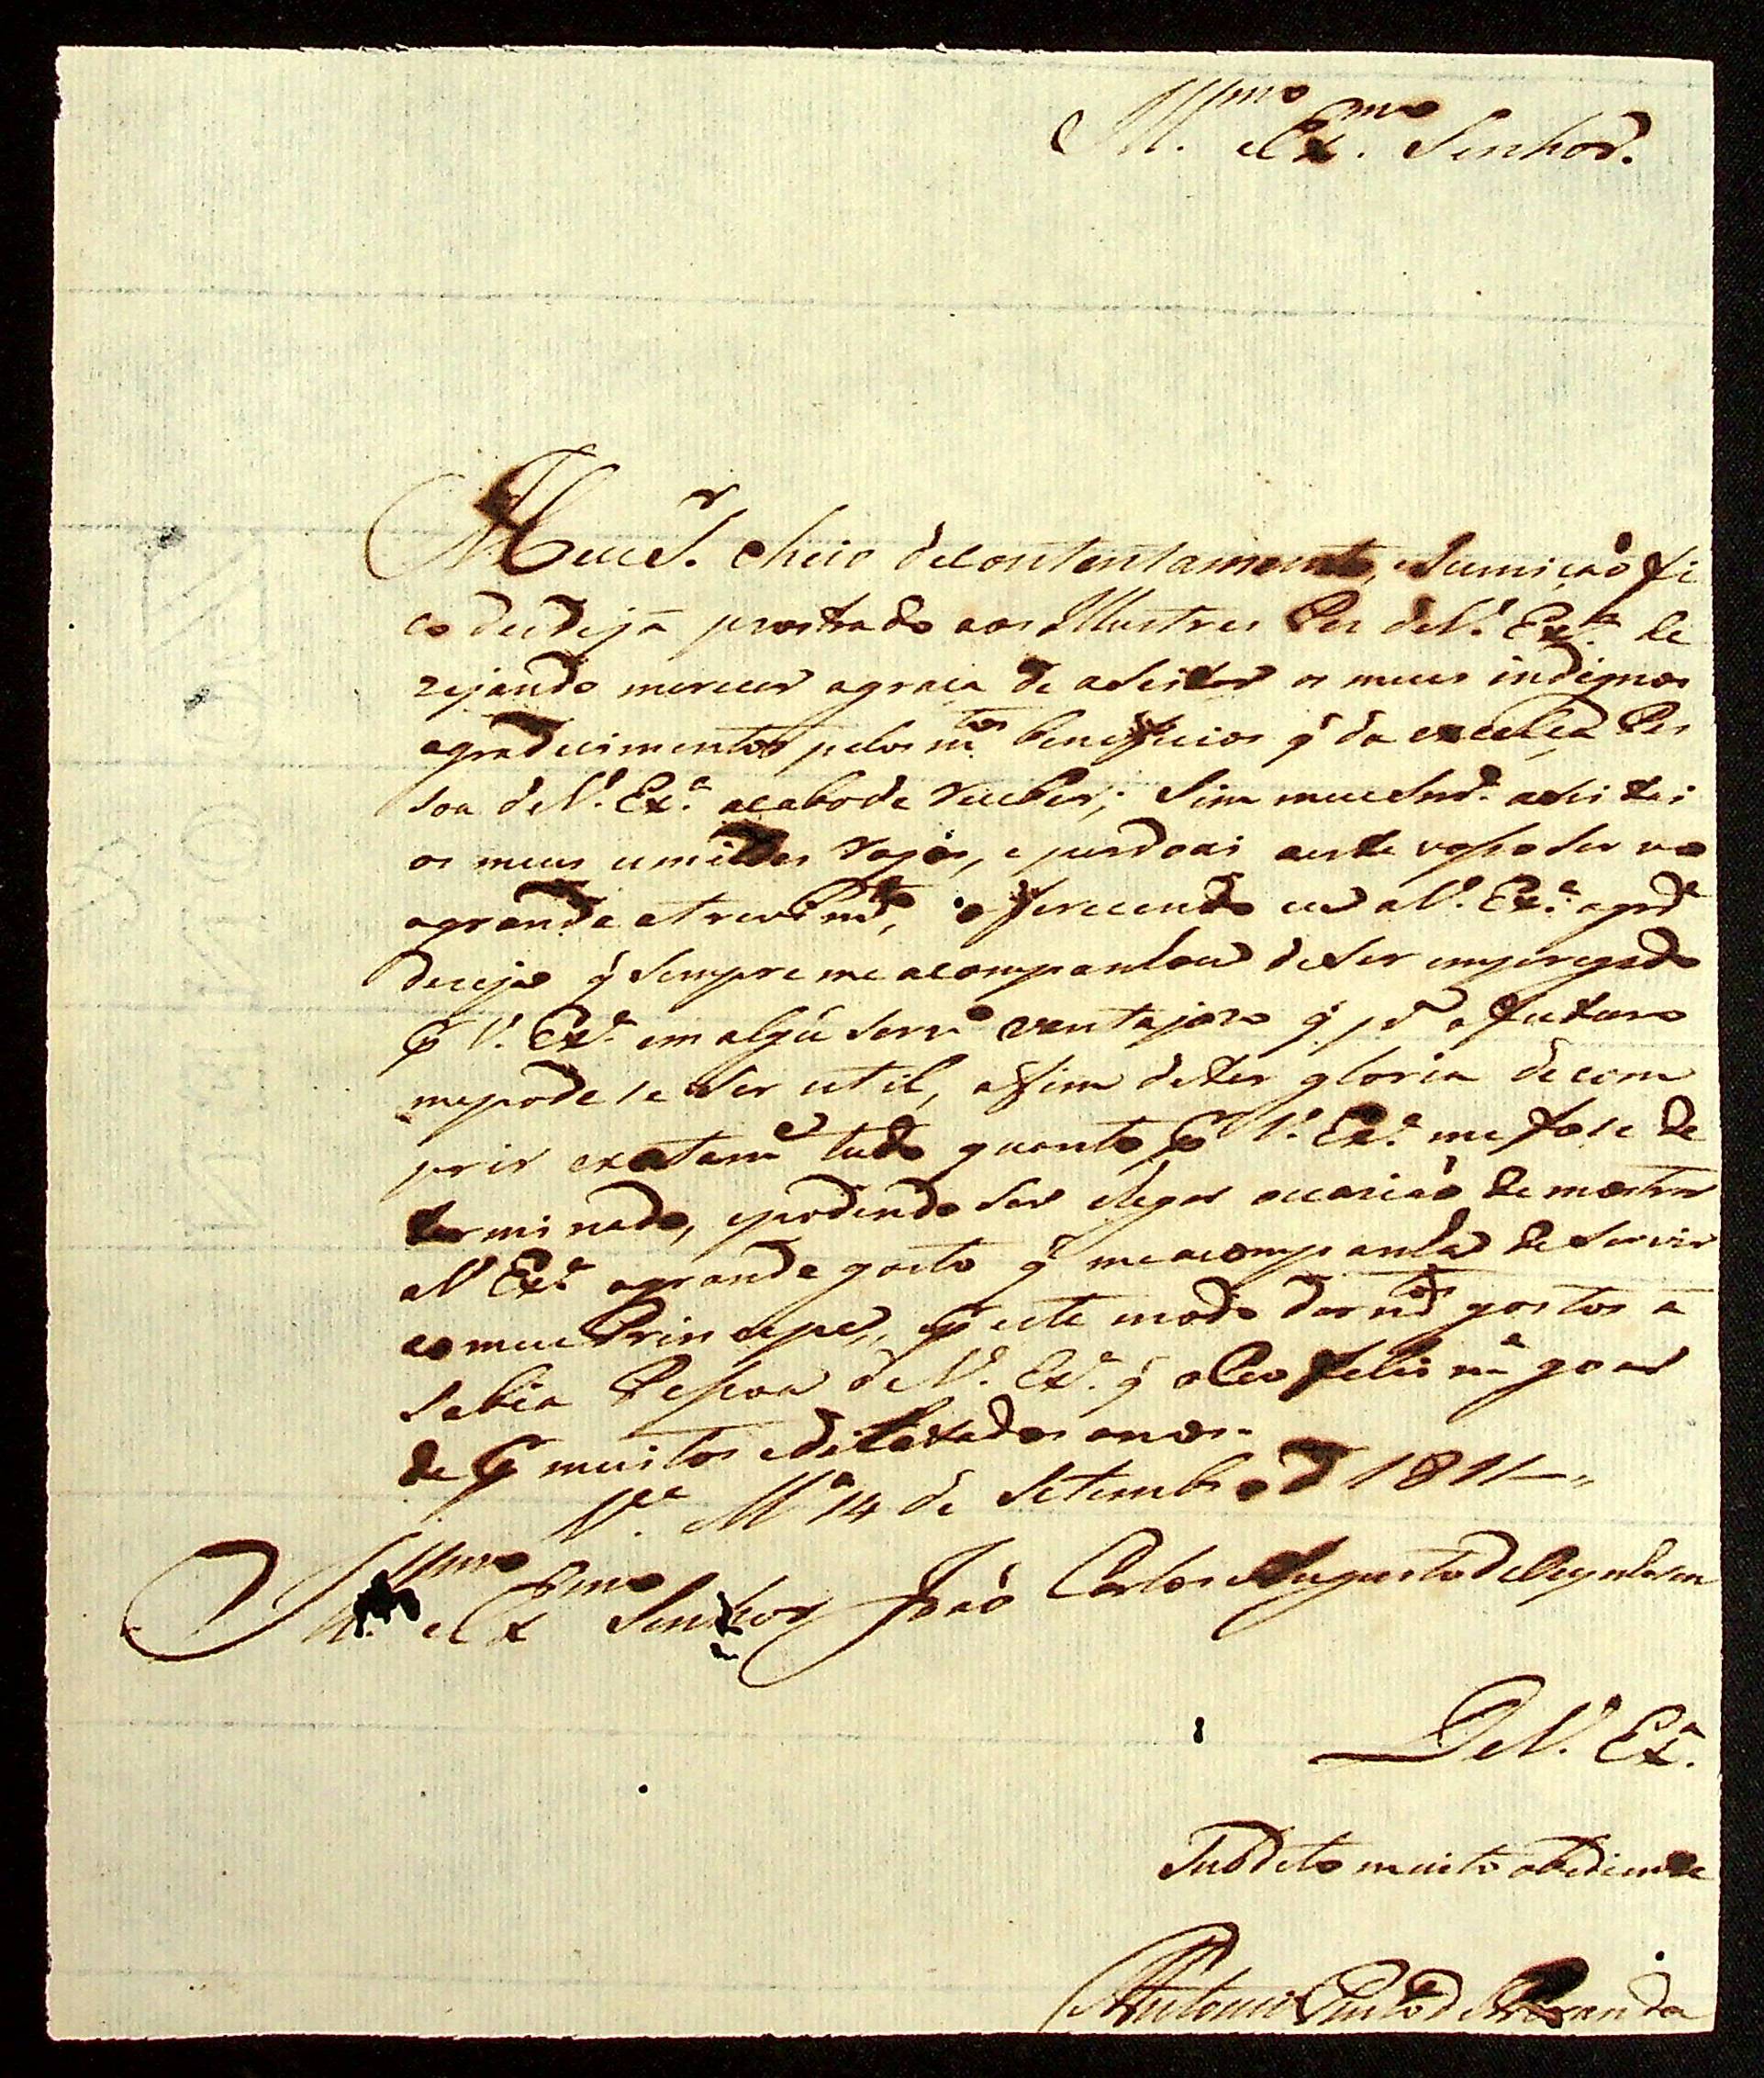 Ill.mo e Ex.mo Senhor.
Meu S.r cheio de contentamento, e sumição fi
co desde já prostrado aos Illustres Pes de V. Ex.a de
zejando merecer a graça de aseitar os meus indignos
agradecimentos pelos m.tos beneficios q̃ da excelça Pes
soa de V. Ex.a acabo de receber; Sim meu Snr. aseitai
os meus umildes rogos, e perdoai a este vosso servo
a grande atrevim.to, oferecendo eu a V. Ex.a a gr.de
dezejo q̃ sempre me acompanhou de ser empregado
p V. Ex.a em algũ serv.o ventajozo q̃ p.a o futuro
me podese ser util, afim de ter gloria de com
prir exatam.e tudo quanto p V. Ex.a me fose de
terminado, e podendo ser chegar ocazião de mostrar
a V. Ex.a a grande gosto q̃ me acompanha de servir
ao meu Principe, e p este modo dar m.tos gostos a
sabia Pessoa de V. Ex.a q̃ o Ceo felis m.e goar
de p muitos e dilatados anos.
V.a M.a 14 de Setembro d 1811
Ill.mo e Ex.mo Senhor João Carlos Augusto de Oeynhasen
De V. Ex.a
Subdito muito obediente
Antonio Pinto d Miranda